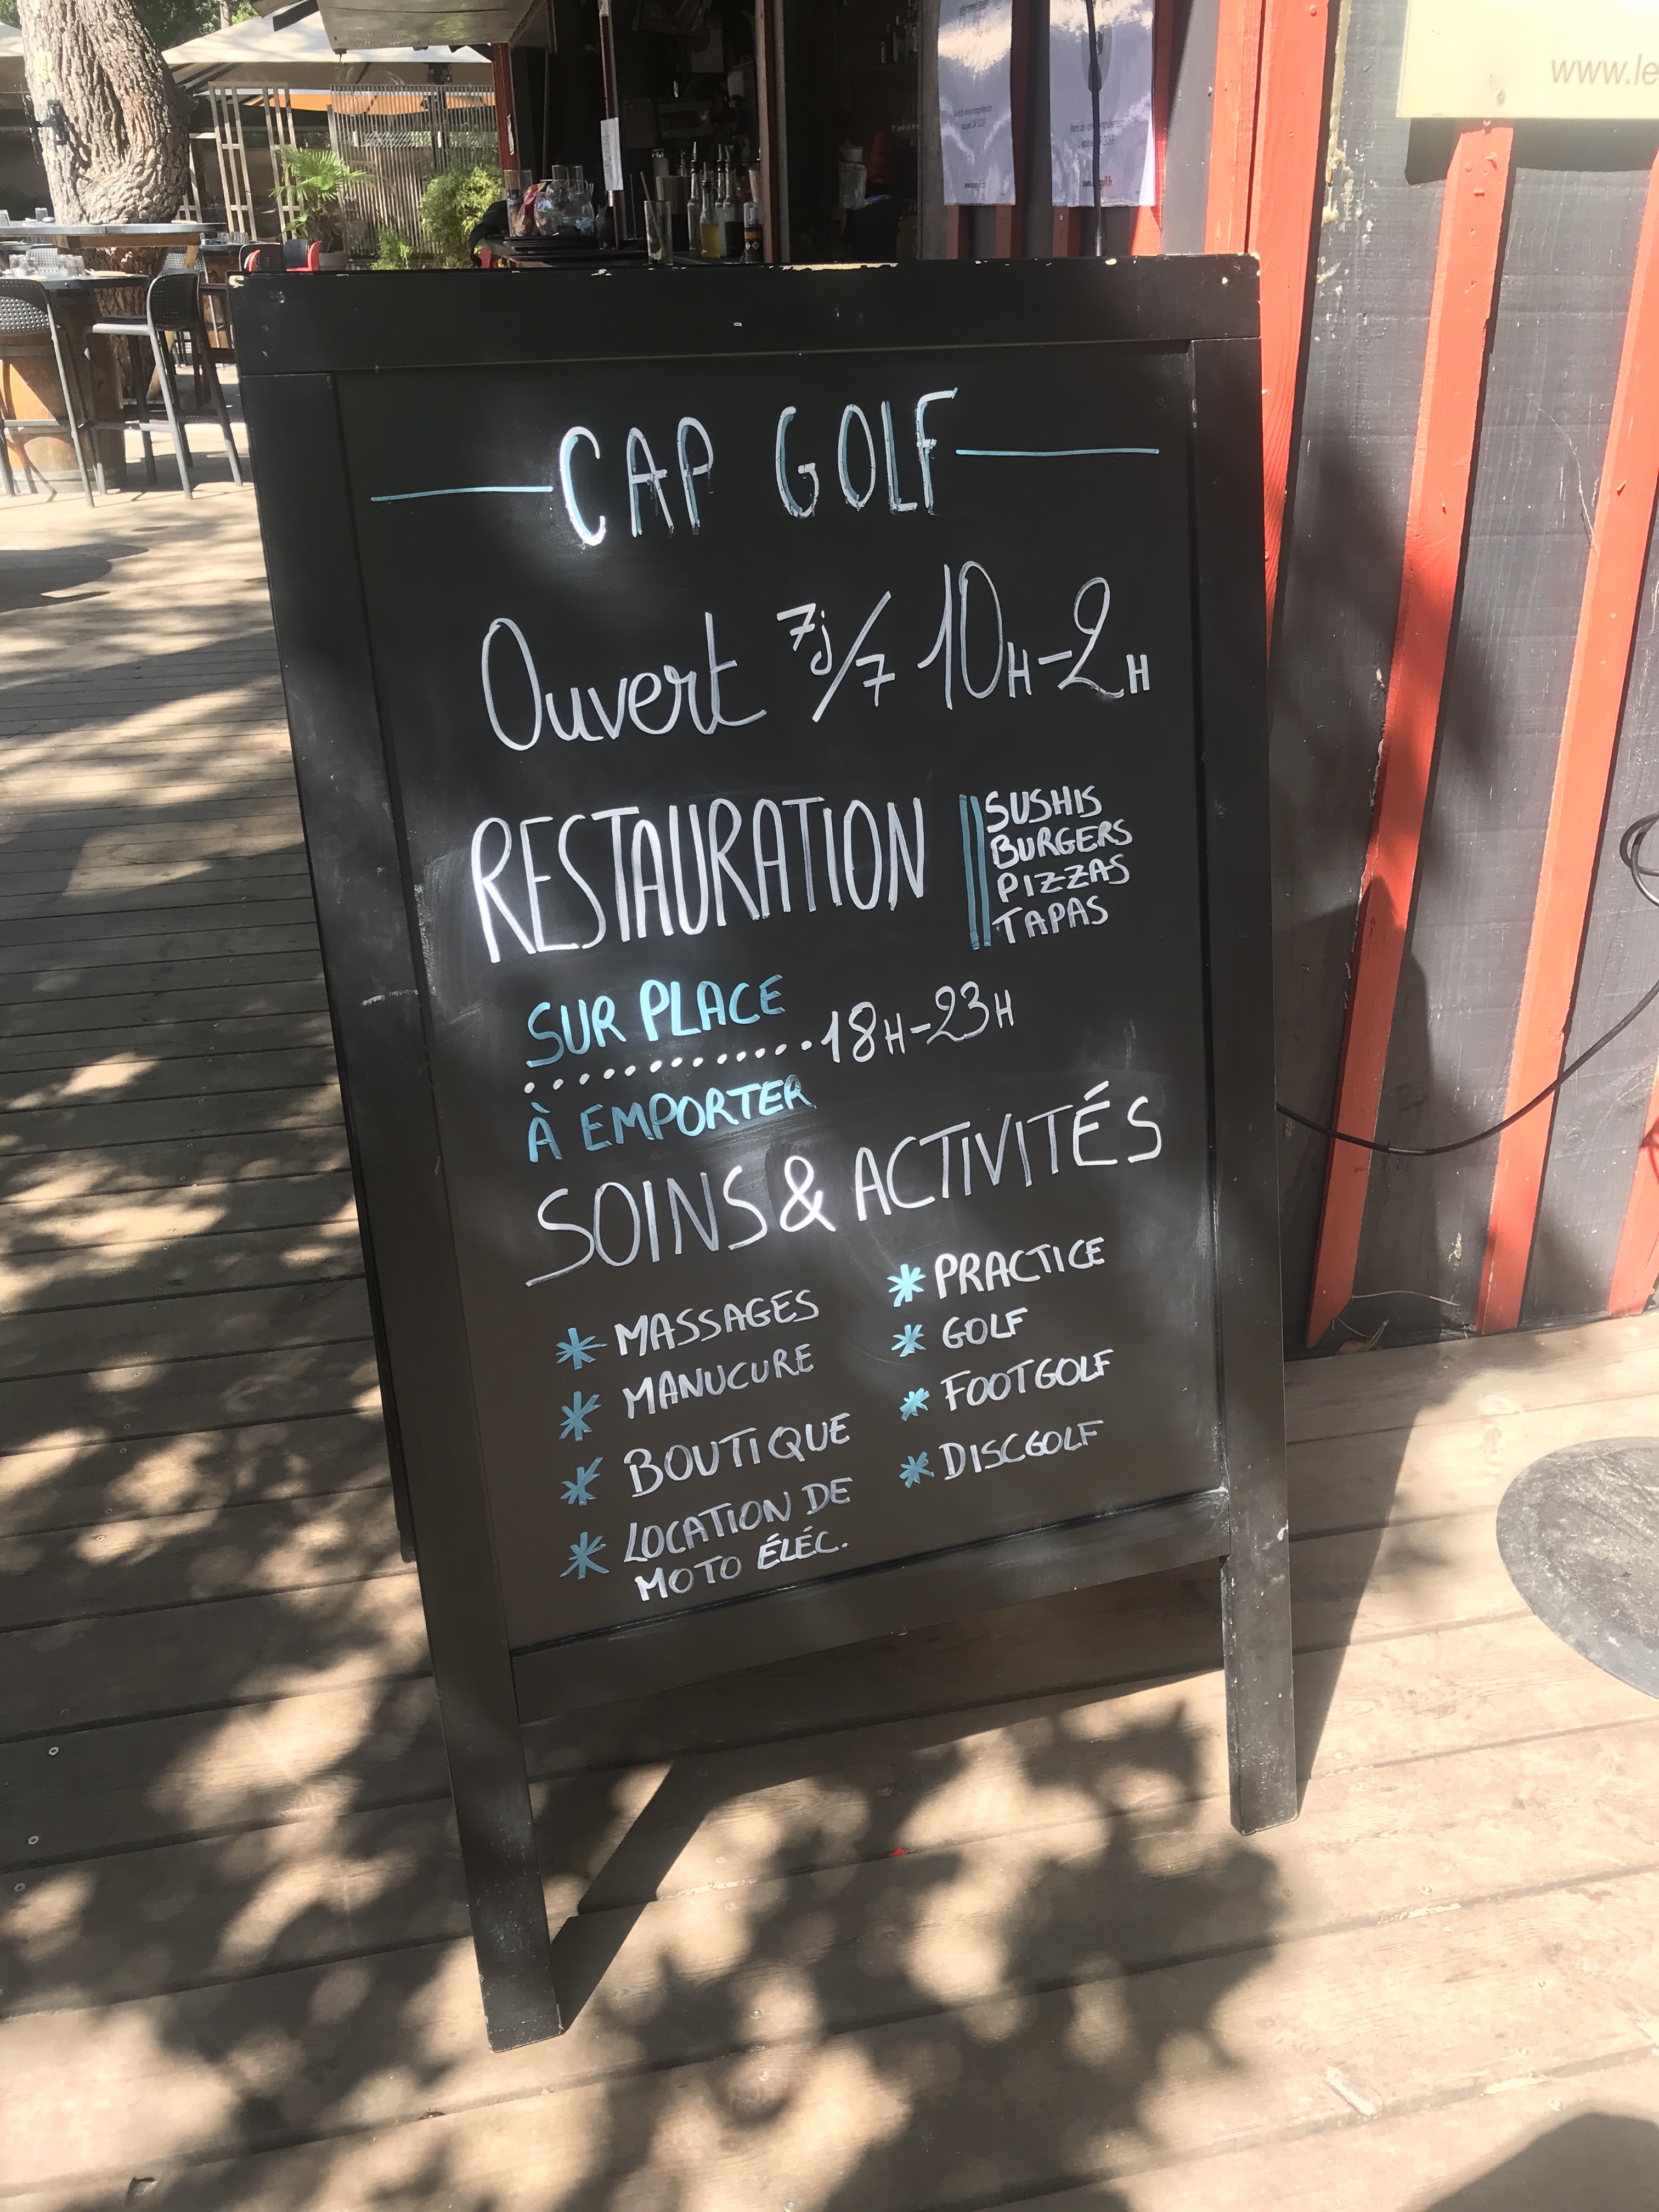 www.le
CAP GOLF
Ouvert 7j/7 10H-2H
RESTAURATION
SUSHIS
BURGERS
PIZZAS
TAPAS
SUR PLACE
18H-23H
À EMPORTER
SOINS & ACTIVITÉS
* MASSAGES
* MANUCURE
* BOUTIQUE
* LOCATION DE
MOTO ÉLÉC.
* PRACTICE
* GOLF
* FOOTGOLF
* DISCGOLF